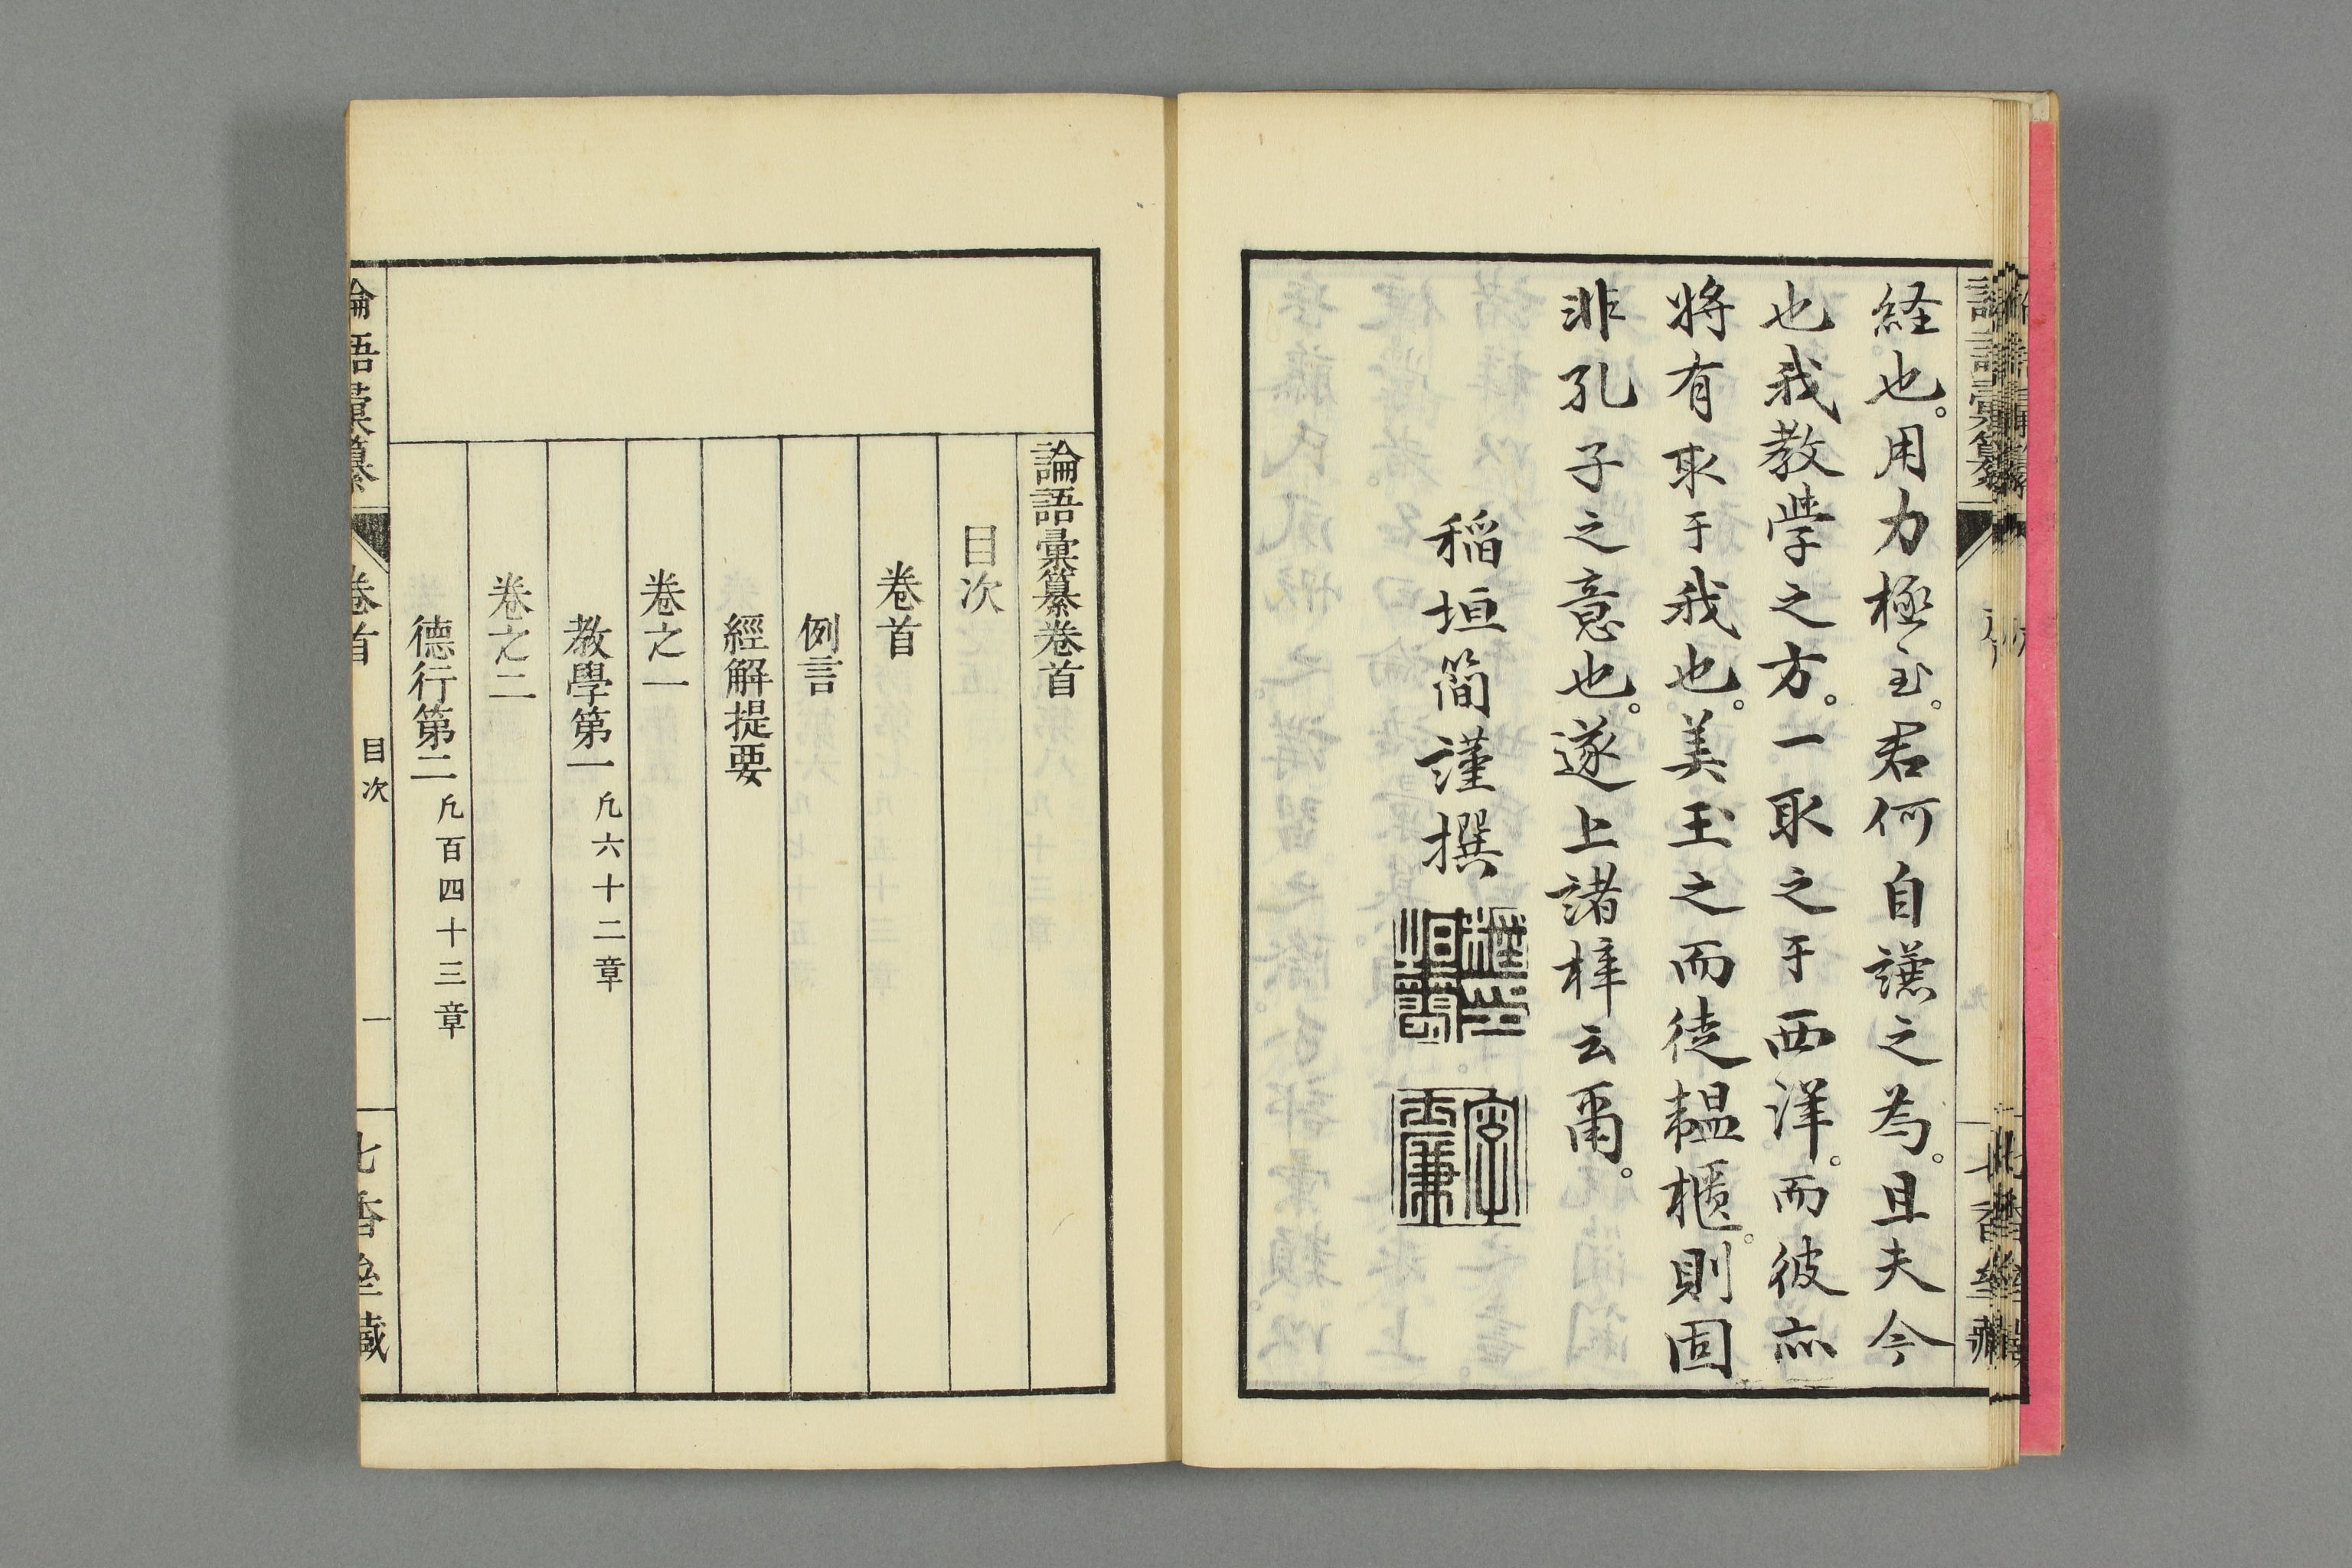 経也。用力極至。君何自謙之為。且夫今
也我教學之方。一取之于西洋。而彼亦
將有取于我也。美玉之而徒韞櫃。則固
非孔子之意也。遂上諸梓云爾。
稲垣簡謹撰
論語彙纂卷首
目次
卷首
例言
經解提要
卷之一
教學第一 凡六十二章
卷之二
德行第二 凡百四十三章
論語彙纂 卷首 目次 一 七香堂藏